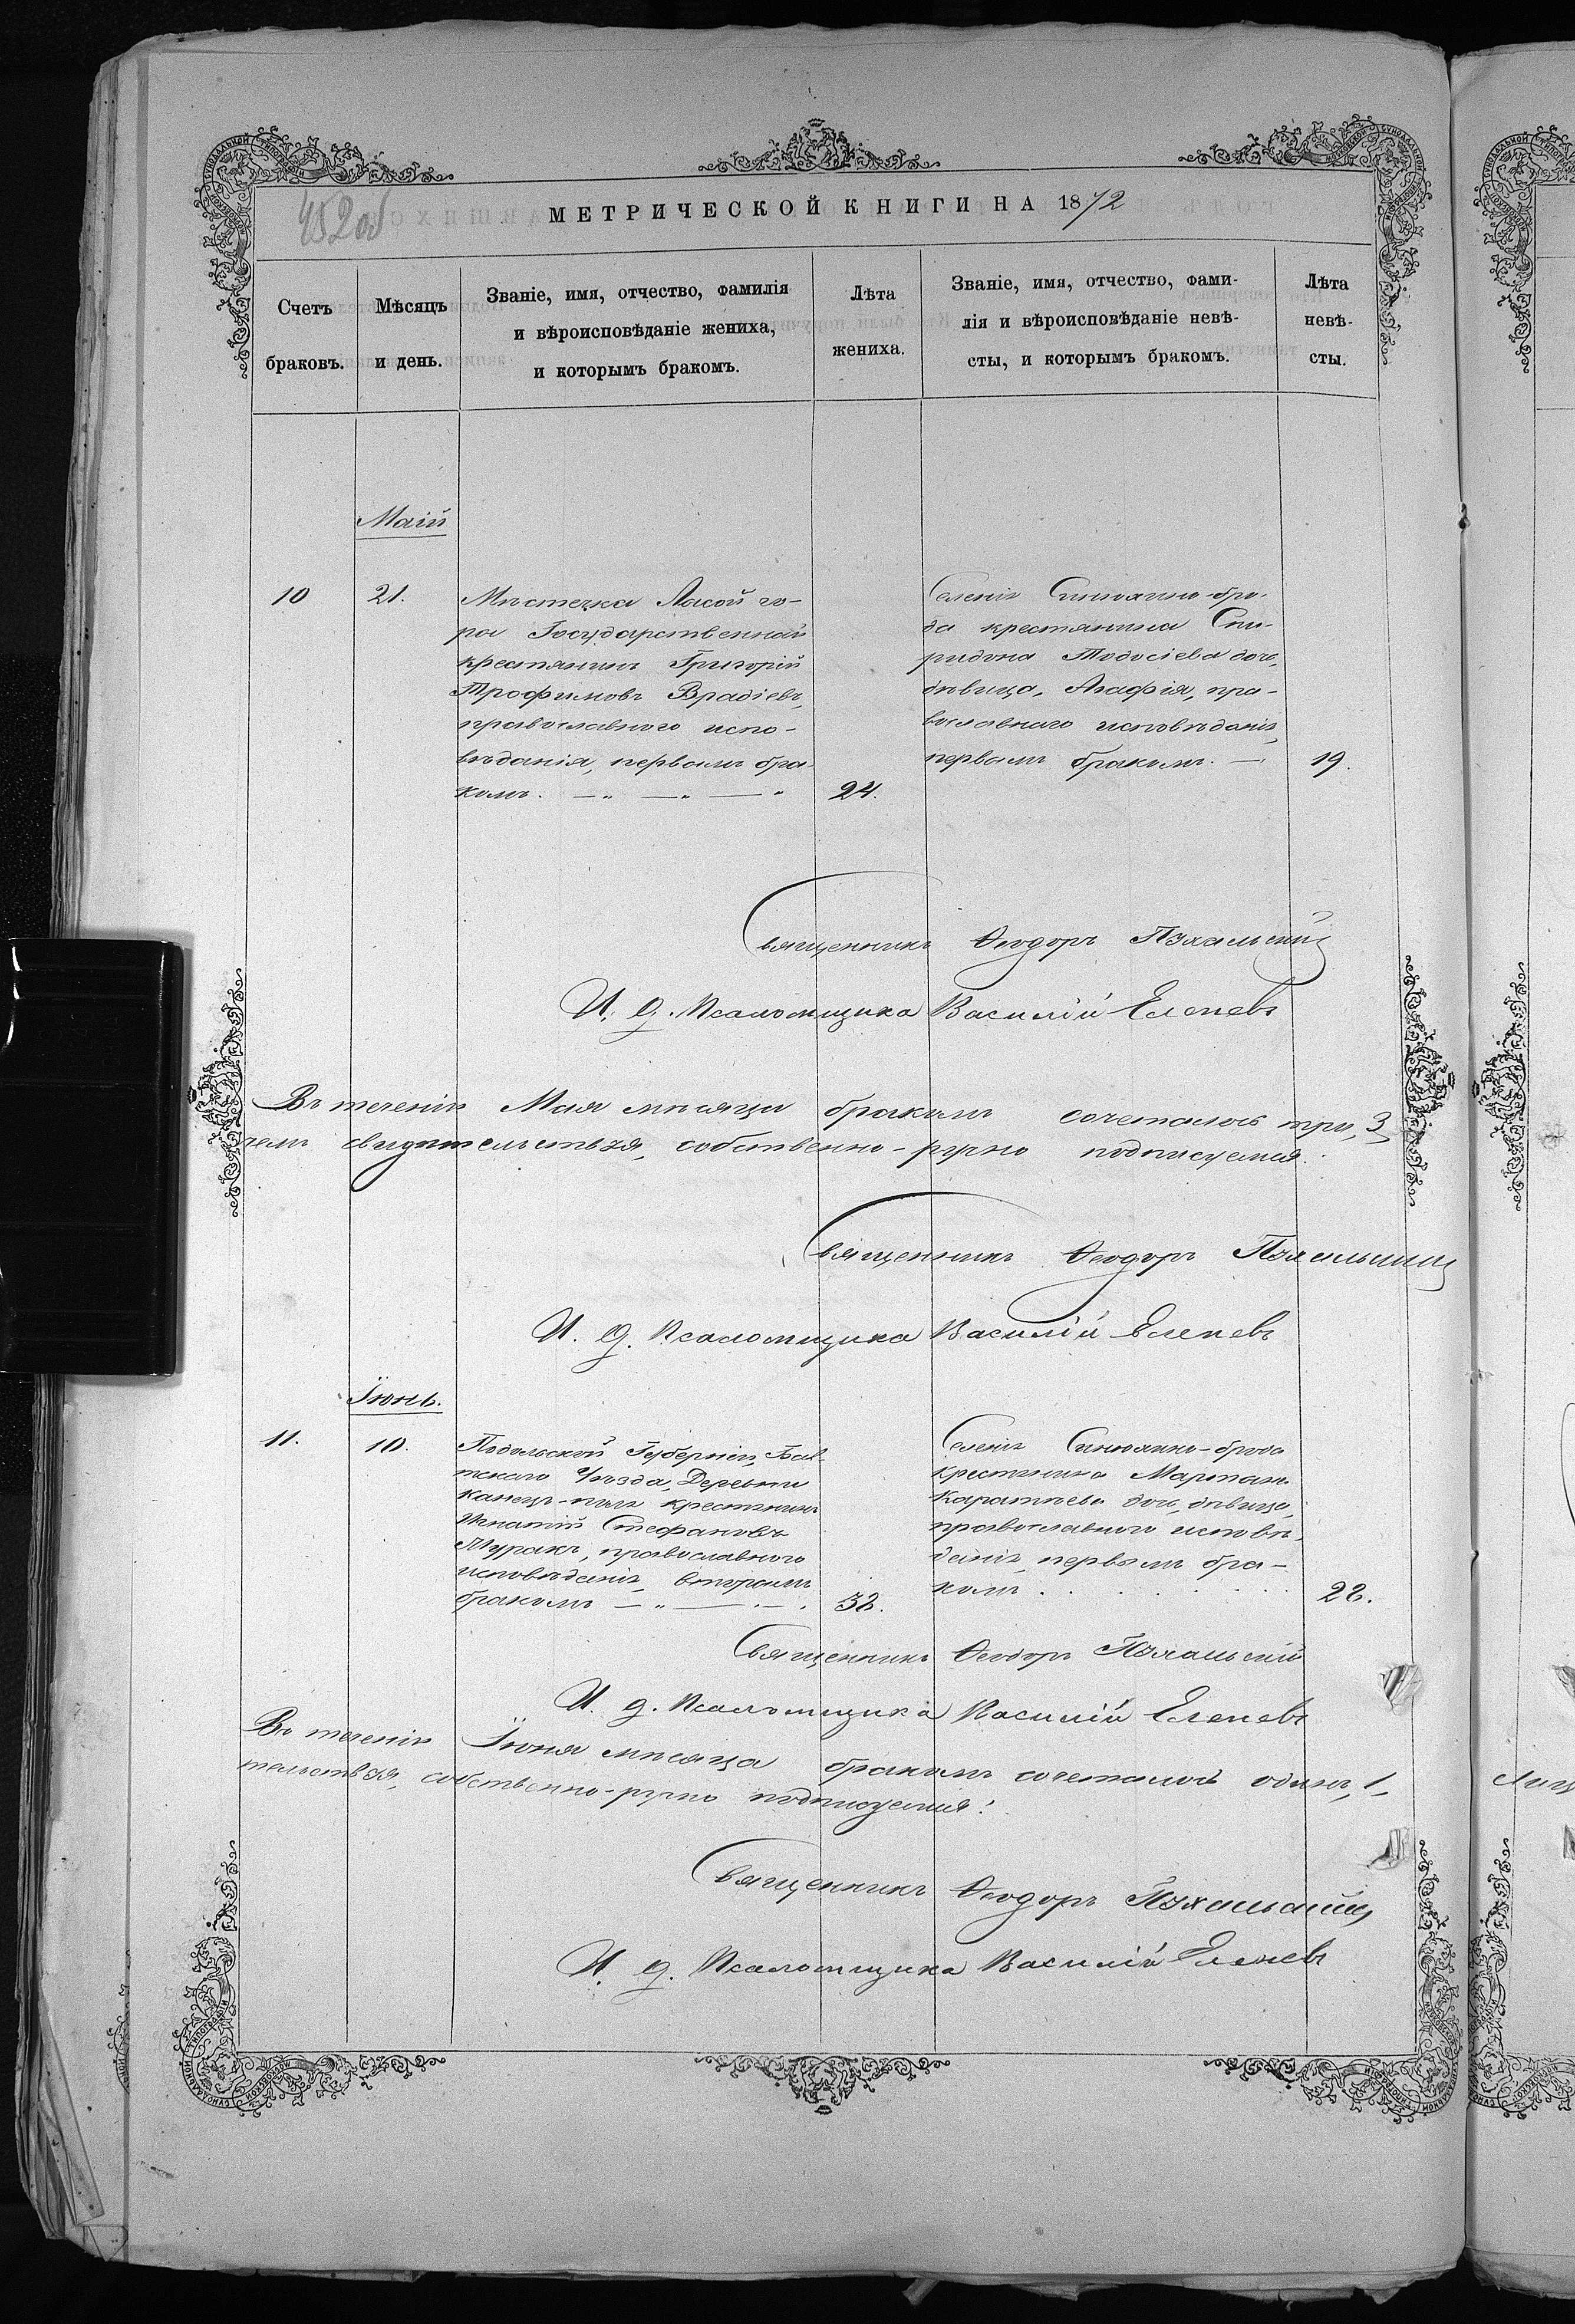 452об
МЕТРИЧЕСКОЙ КНИГИ НА 1872
Счетъ браковъ.
Мѣсяцъ и день.
Званіе, имя, отчество, фамилія
и вѣроисповѣданіе жениха,
и которымъ бракомъ.
Лѣта
жениха.
Званіе, имя, отчество, фами-
лія и вѣроисповѣданіе невѣ-
сты, и которымъ бракомъ.
Лѣта
невѣ-
сты.
Маій
10
21.
Мѣстечка Лысой го-
ра Государственный
крестянинъ Григорій
Трофимовъ Врадіевъ,
православного испо-
вѣданія, первымъ бра-
комъ. — „ — „ — „
24.
Селенія Синюхино-бро-
да крестянина Спи-
ридона Тодосіева доч,
дѣвица, Агафія, пра-
вославнаго исповѣданія,
первымъ бракомъ. —
19.
Священникъ Ѳеодоръ
И. д. Псаломщика Василій Еленевъ
Въ теченіи Мая мѣсяца бракомъ сочеталось три, 3,
чемъ свидѣтельствуя, собственно-ручно подписуемся.
Священникъ Ѳеодоръ
И. д. Псаломщика Василій Еленевъ
Іюнь.
11.
10.
Подольской Губерніи, Бал-
тскаго Уѣзда, Деревни
крестянинъ
Игнатій Стефановъ
Туракъ, православного
исповѣданія, вторымъ
бракомъ — „ — . — .
32.
Селенія Синюхино-брода
крестянина Мартына
доч, дѣвица,
православного исповѣ-
данія, первымъ бра-
комъ . . . . . .
22.
Священникъ Ѳеодоръ
И. д. Псаломщика Василій Еленевъ
Въ теченіи Іюня мѣсяца бракомъ сочеталось одинъ, 1,
тельствуя, собственно-ручно подписуемся.
Священникъ Ѳеодоръ
И. д. Псаломщика Василій Еленевъ